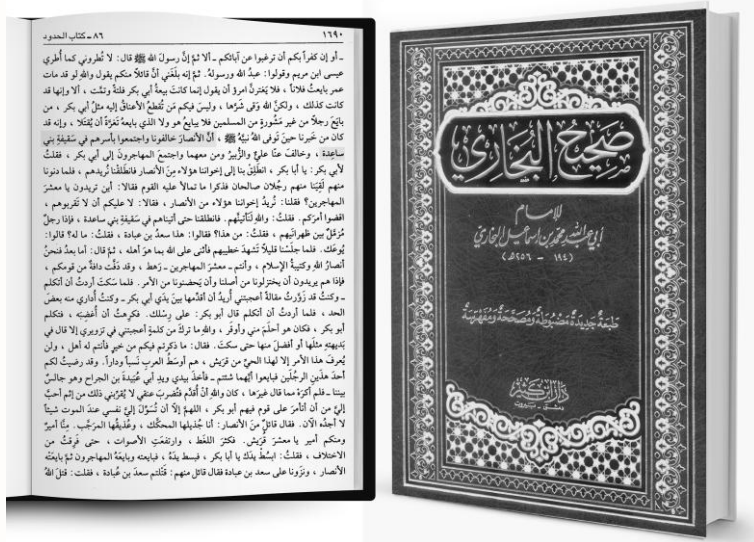 ١٦٩٠
٨٦ - كتاب الحدود
- أو إن كفراً بكم أن ترغبوا عن آبائكم - ألا ثمّ إنّ رسولَ الله ﷺ قال: لا تُطروني كما أُطري
عيسى ابن مريم وقولوا: عبدُ الله ورسولهُ. ثمّ إنه بلَغَني أنّ قائلاً منكم يقول واللهِ لو قد مات
عمر بايعتُ فلاناً، فلا يَغترنّ امرؤ أن يقول إنما كانتَ بيعةُ أبي بكر فَلتةً وتمَّت، ألا وإنها قد
كانت كذلك، ولكنّ اللهَ وَقى شرَّها، وليس فيكم مَن تُقطعُ الأعناقُ إليه مثلُ أبي بكر، من
بايَعَ رجلاً من غيرِ مَشُورةٍ من المسلمين فلا يبايعُ هو ولا الذي بايعهُ تَغرَّةَ أن يُقتَلا، وإنه قد
كان من خَبرنا حينَ توفى اللهُ نبيَّهُ ﷺ، أنّ الأنصارَ خالفونا واجتمعوا بأسرهم في سَقيفةِ بني
ساعِدة، وخالفَ عنّا عليٌّ والزُّبيرُ ومن معهما واجتمعَ المهاجرونَ إلى أبي بكر، فقلتُ
لأبي بكر: يا أبا بكر، انطلِقْ بنا إلى إخواننا هؤلاء منَ الأنصار فانطلَقْنا نُريدهم، فلما دنونا
منهم لَقيَنا منهم رجُلان صالحان فذكرا ما تمالأ عليه القوم فقالا: أين تريدون يا معشرَ
المهاجرين؟ فقلنا: نُريدُ إخواننا هؤلاء من الأنصار، فقالا: لا عليكم أن لا تَقربوهم،
اقضوا أمرَكم. فقلتُ: واللهِ لَنأتينَّهم. فانطلقنا حتى أتيناهم في سَقيفةِ بني ساعدة، فإذا رجلٌ
مُزمَّلٌ بين ظهرانَيهم، فقلتُ: من هذا؟ فقالوا: هذا سعدُ بن عبادة، فقلتُ: ما له؟ قالوا:
يُوعَك. فلما جلَسْنا قليلاً تَشهدَ خطيبهم فأثنى على الله بما هوَ أهله، ثمّ قال: أما بعدُ فنحنُ
أنصارُ اللهِ وكتيبةُ الإسلام، وأنتم - معشرَ المهاجرين - رَهط، وقد دَفَّت دافةٌ من قومكم،
فإذا هم يريدون أن يختزلونا من أصلنا وأن يَحضنونا من الأمر. فلما سكتَ أردتُ أن أتكلم
- وكنتُ قد زَوَّرتُ مقالةً أعجبتني أُريدُ أن أقدّمها بينَ يدَي أبي بكر - وكنتُ أداري منه بعضَ
الحد، فلما أردتُ أن أتكلم قال أبو بكر: على رِسْلك. فكرِهتُ أن أُغضِبَه، فتكلم
أبو بكر، فكان هو أحلَمَ مني وأوقَر، واللهِ ما تركَ من كلمةٍ أعجبتني في تزويري إلا قال في
بَديهتهِ مثلَها أو أفضلَ منها حتى سكتَ. فقال: ما ذكرتم فيكم من خيرٍ فأنتم له أهل، ولن
يُعرفَ هذا الأمر إلا لهذا الحيِّ من قرَيش، هم أوسَطُ العربِ نَسباً وداراً. وقد رضيتُ لكم
أحدَ هذَينِ الرجُلَين فبايعوا أيَّهما شئتم - فأخذَ بيدي ويدِ أبي عُبَيدةَ بن الجراح وهو جالسٌ
بيننا - فلم أكرَهْ مما قال غيرَها، كان واللهِ أنْ أُقدَّمَ فتُضرَبَ عنقي لا يُقرِّبني ذلك من إثم أحبَّ
إليَّ من أن أتأمرَ على قوم فيهم أبو بكر، اللهمّ إلاّ أن تُسَوِّلَ إليَّ نفسي عندَ الموت شيئاً
لا أجدهُ الآن. فقال قائلٌ منَ الأنصار: أنا جُذَيلها المحكَّك، وعُذَيقُها المرَجَّب. مِنّا أميرٌ
ومنكم أمير يا معشرَ قُرَيش. فكثرَ اللغَط، وارتفعتِ الأصوات، حتى فَرِقتُ من
الاختلاف، فقلتُ: ابسُطْ يدَك يا أبا بكر، فبسط يدهُ، فبايعته وبايعهُ المهاجرون ثمَّ بايَعَتْه
الأنصار، ونَزَونا على سعد بن عبادة فقال قائل منهم: قَتلتم سعدَ بن عُبادة، فقلت: قتلَ اللهُ
صحيح البخاري
للإمام
أبي عبد الله محمد بن إسماعيل البخاري
(١٩٤ - ٢٥٦هـ)
طبعة جديدة مضبوطة ومصححة ومفهرسة
دار ابن كثير
دمشق - بيروت